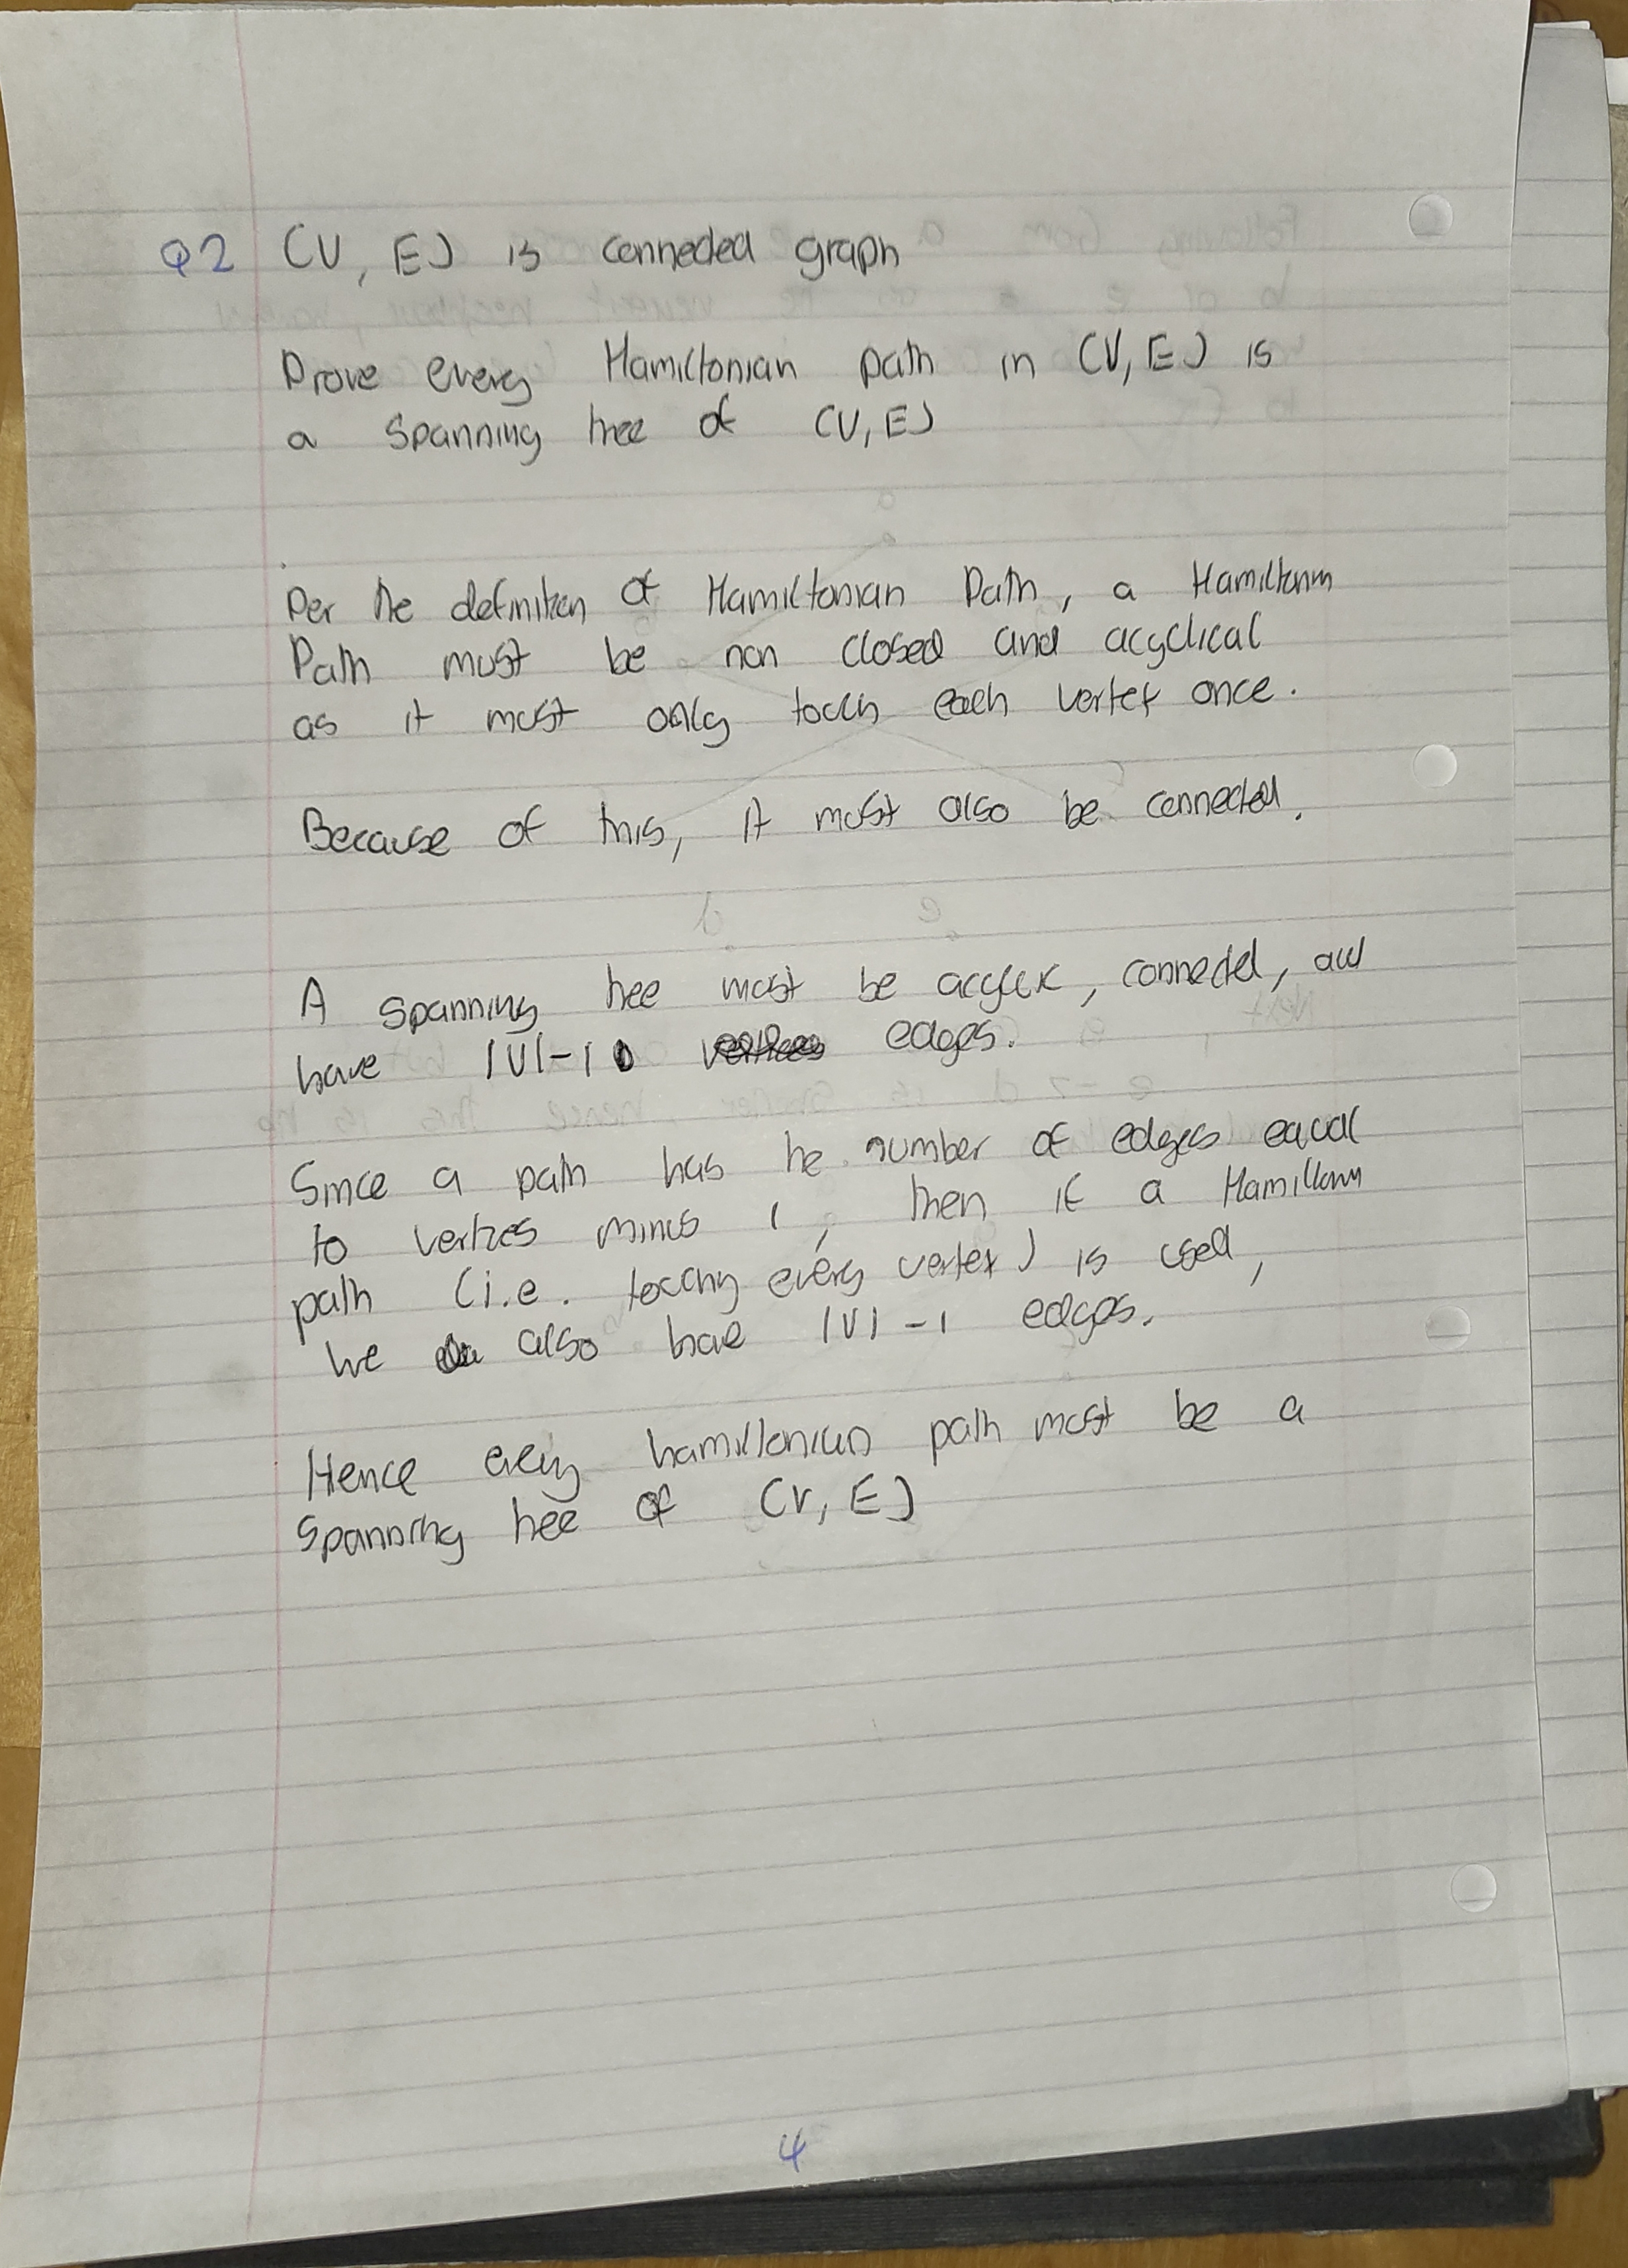 Q2 (V, E) is connected graph
Prove every Hamiltonian path in (V, E) is
a spanning tree of (V, E)
Per the definition of Hamiltonian Path, a Hamiltonian
Path must be non closed and acyclical
as it must only touch each vertex once.
Because of this, it must also be connected.
A spanning tree must be acyclic, connected, and
have |V|-1 edges.
Since a path has the number of edges equal
to vertices minus 1, then if a Hamiltonian
path (i.e. touching every vertex) is used,
we also have |V|-1 edges.
Hence every hamiltonian path must be a
spanning tree of (V, E)
4